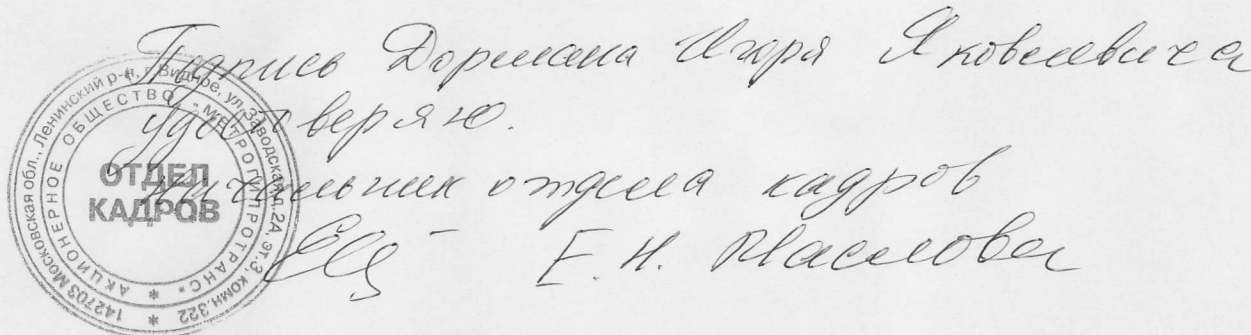 Подпись Дормана Игоря Яковлевича
удостоверяю.
начальник отдела кадров
Е.Н. Маслова
142703 Московская обл., Ленинский р-н, г. Видное, ул. Заводская, 2А, эт.3, комн.322
АКЦИОНЕРНОЕ ОБЩЕСТВО "МЕТРОГИПРОТРАНС"
ОТДЕЛ
КАДРОВ